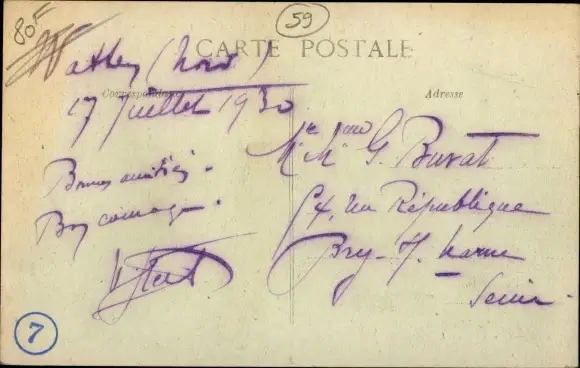 80F
59
CARTE POSTALE
Correspondance
Adresse
Watten (Nord)
17 Juillet 1930
Bonnes amitiés.
Bon courage.
Mr et Mme G. Buvat
54, rue République
Bry-s/-Marne
Seine.
7